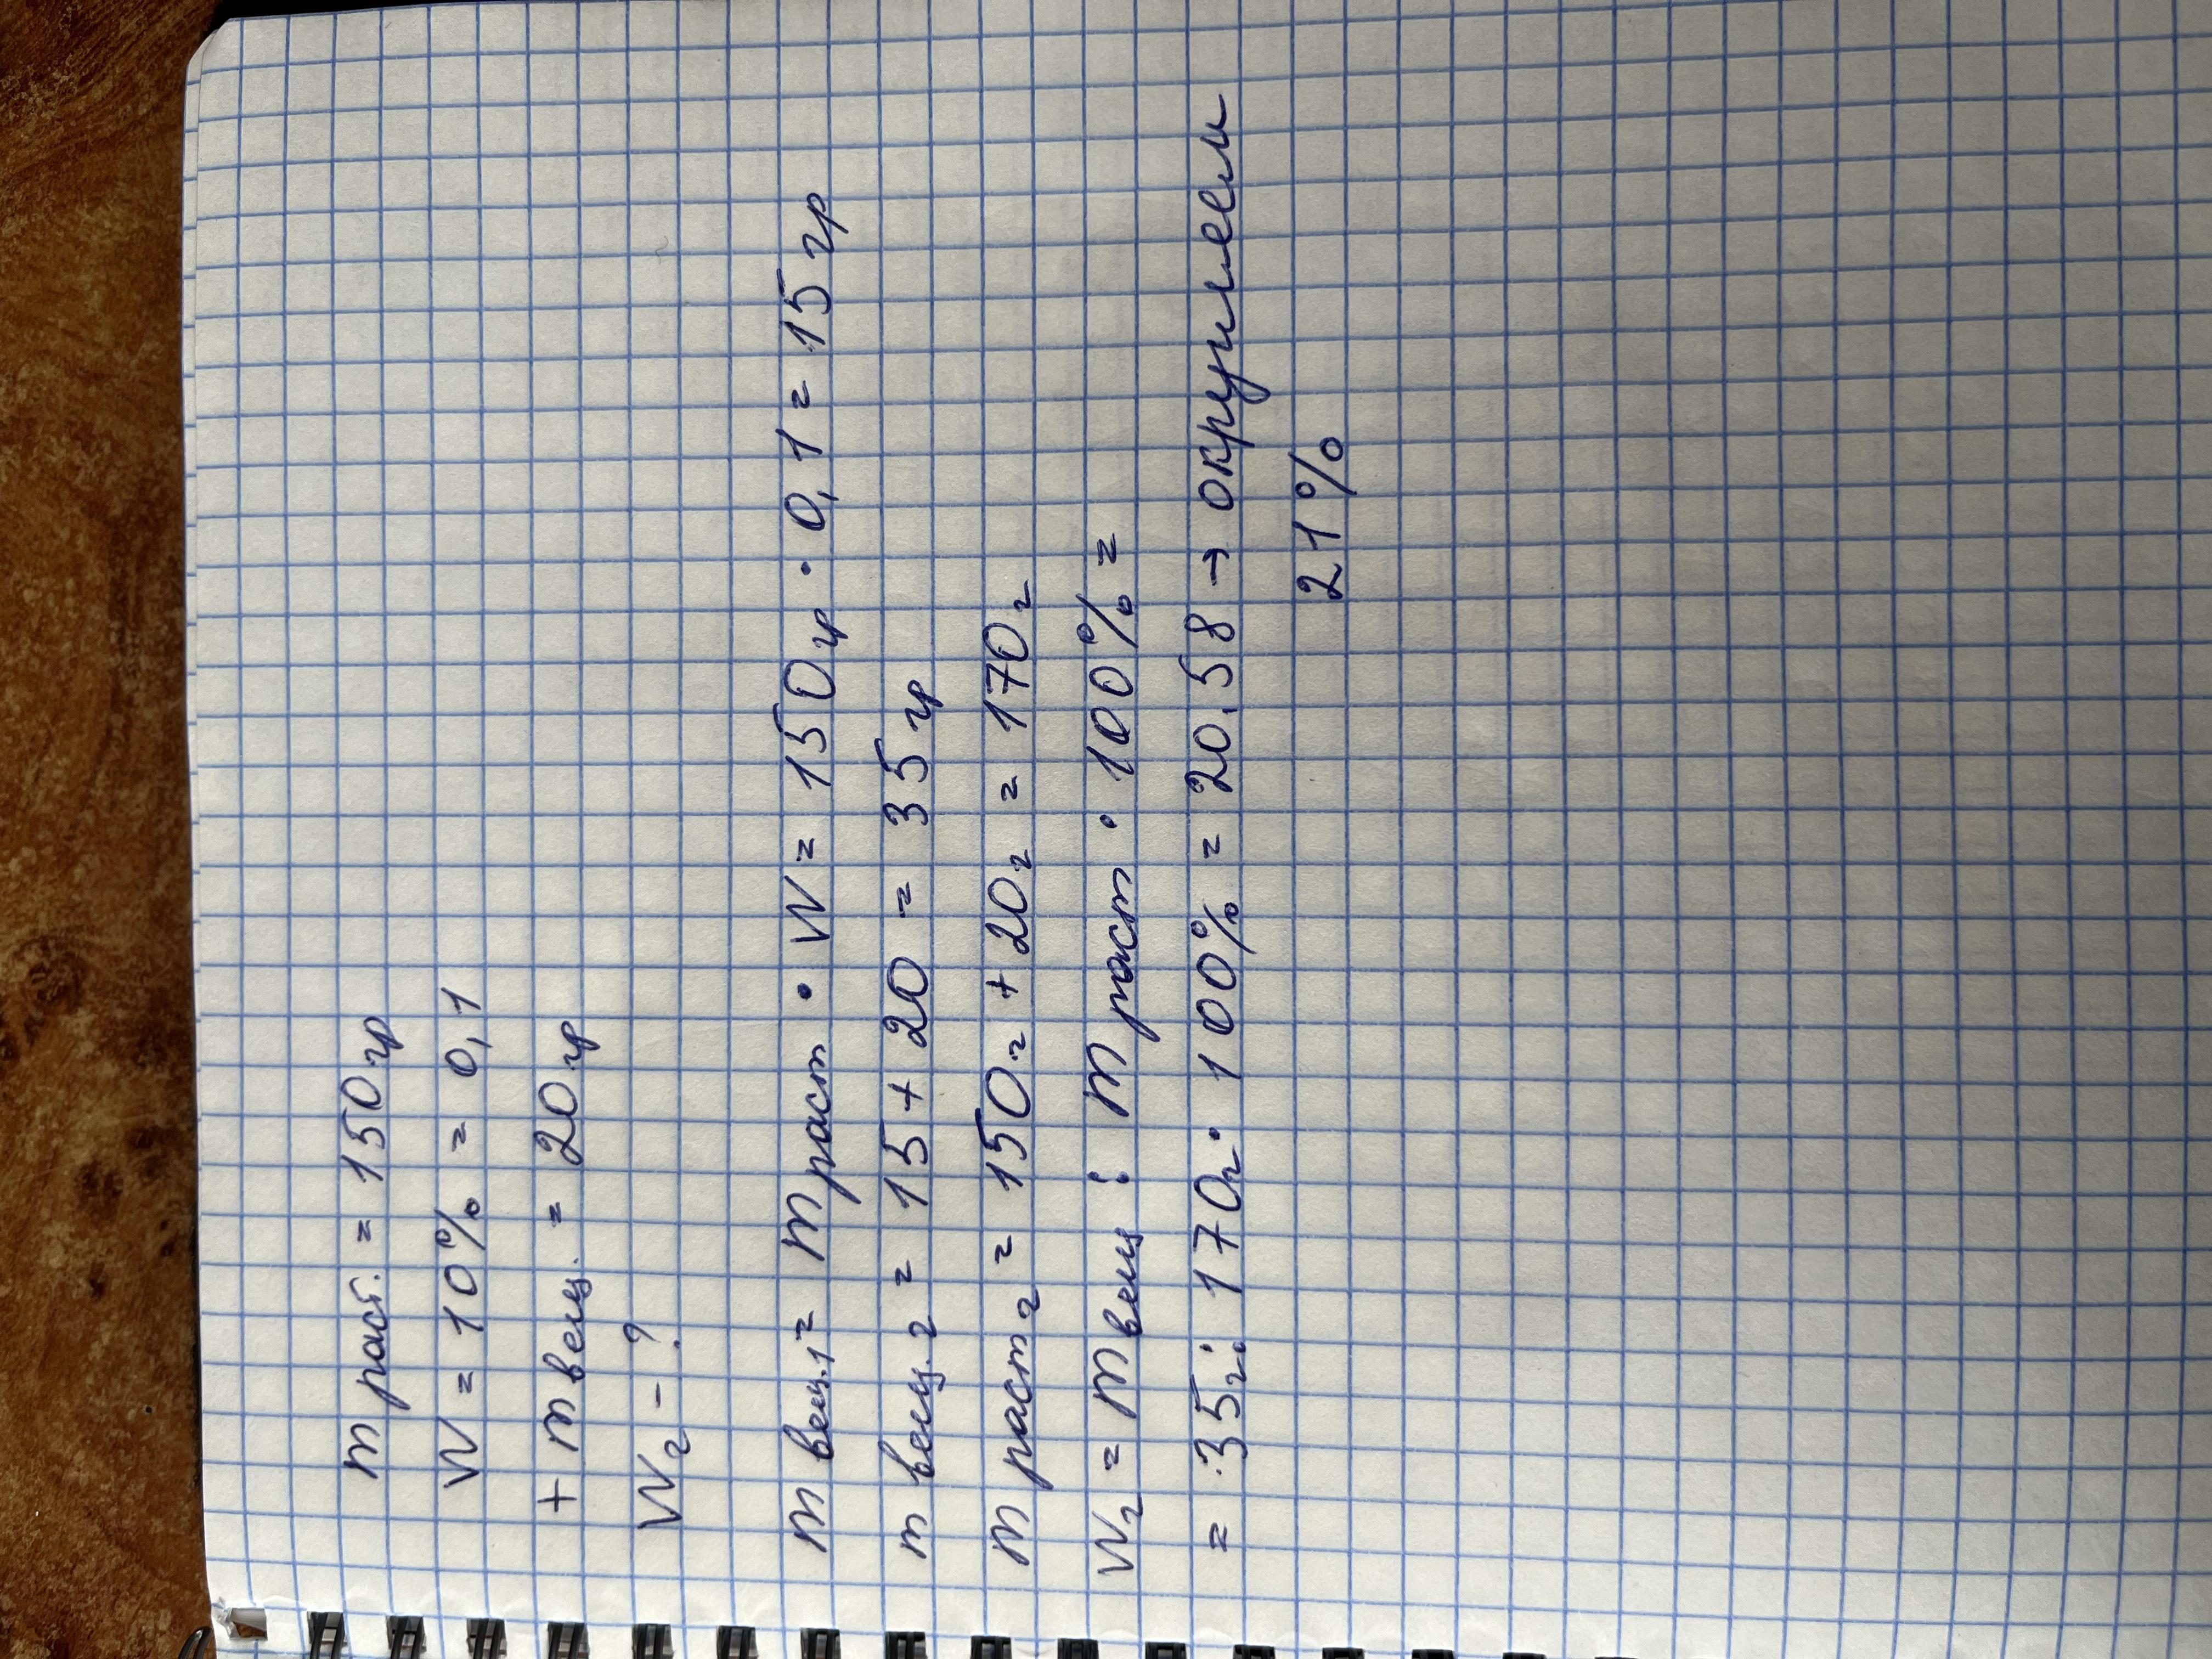 m раст. = 150 гр
W = 10% = 0,1
+ m вещ. = 20 гр
W₂ - ?
m вещ.₁ = m раст • W = 150 гр • 0,1 = 15 гр
m вещ.₂ = 15 + 20 = 35 гр
m раст₂ = 150г + 20г = 170г
W₂ = m вещ : m раст • 100% =
= 35г : 170г • 100% = 20,58 → округляем
21%